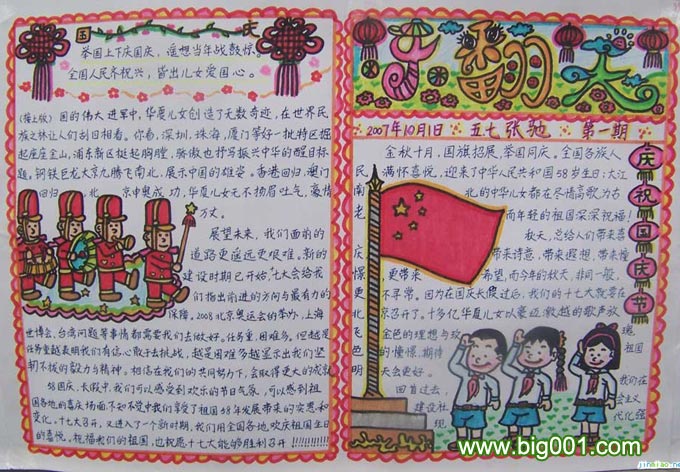 国庆
举国上下庆国庆，遥想当年战鼓惊。
全国人民齐祝兴，皆出儿女爱国心。
(接上版) 国的伟大进军中，华夏儿女创造了无数奇迹，在世界民
族之林让人们刮目相看。你看，深圳，珠海，厦门等好一批特区掘
起座座金山，浦东新区挺起胸膛，骄傲也抒写振兴中华的醒目标
题，钢铁巨龙大京九腾飞南北，展示中国的雄姿。香港回归，澳门
回归 北 京申奥成功，华夏儿女无不扬眉吐气，豪情
万丈。
展望未来，我们面前的
道路更遥远更艰难，新的
建设时期已开始，十七大会给我
们指出前进的方向与最有力的
保障。2008北京奥运会的举办，上海
世博会，台湾问题等事情都需要我们去做好。任务重，困难多。但越是
任务重越表明我们有信心敢于去挑战，越是困难多越显示出我们坚
韧不拔的毅力与精神。相信在我们的共同努力下，会取得更大的成就
58国庆，长假中，我们可以感受到欢乐的节日气氛，可以感到祖
国各地的喜庆场面，不知不觉中我们享受了祖国58年发展带来的实惠和
变化。十七大召开，又进入了一个新时期，我们用全国各地欢庆祖国生日
的喜悦，祝福我们的祖国，也祝愿十七大能够胜利召开!!!!!!!!!!
2007年10月1日 五七张驰 第一期
庆祝国庆节
金秋十月，国旗招展，举国同庆。全国各族人
民 满怀喜悦，迎来了中华人民共和国58岁生日；大江
南 北的中华儿女都在尽情高歌为古
老 而年轻的祖国深深祝福！
秋天，总给人们带来喜
庆 带来诗意，带来遐想，带来憧
憬 更带来 希望，而今年的秋天，非同一般，
更 不寻常。因为在国庆大假过后，我们的十七大就要在
北 京召开了。十多亿华夏儿女以豪迈激越的歌声放
飞 金色的理想与玫 瑰
色 的憧憬，期待 祖国
明 天会更好。
回首过去， 我们在
建设社 会主义
现 代化强
www.big001.com